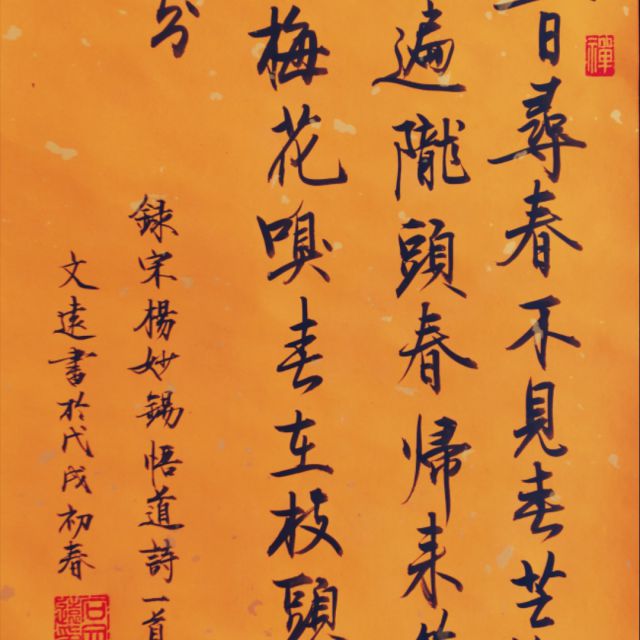 日尋春不見春芒
遍隴頭春歸來
梅花嗅春在枝頭
分
録宋楊妙錫悟道詩一首
文遠書於戊戌初春
禪